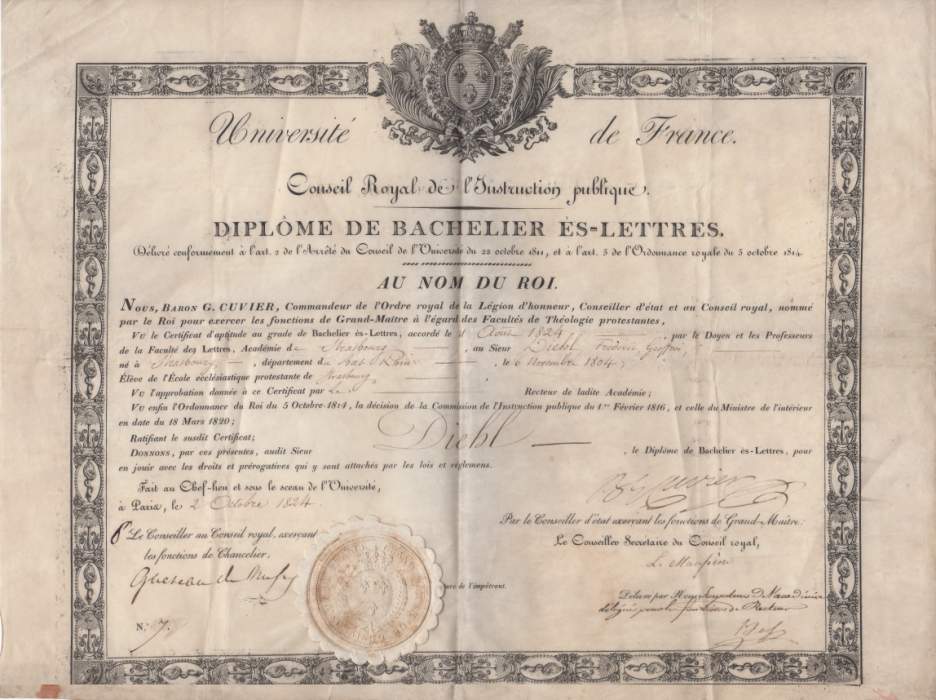 Université de France.
Conseil Royal de l'Instruction publique.
DIPLÔME DE BACHELIER ÈS-LETTRES.
(Délivré conformément à l'art. 2 de l'Arrêté du Conseil de l'Université du 22 octobre 1811, et à l'art. 5 de l'Ordonnance royale du 5 octobre 1814.
AU NOM DU ROI.
NOUS, BARON G. CUVIER, Commandeur de l'Ordre royal de la Légion d'honneur, Conseiller d'état et au Conseil royal, nommé
par le Roi pour exercer les fonctions de Grand-Maître à l'égard des Facultés de Théologie protestantes,
VU le Certificat d'aptitude au grade de Bachelier ès-Lettres, accordé le Août 1824, par le Doyen et les Professeurs
de la Faculté des Lettres, Académie de Strasbourg au Sieur Diehl, Frédéric
né à Strasbourg, département du Bas Rhin, le 6 Novembre 1804,
Élève de l'École ecclésiastique protestante de Strasbourg,
VU l'approbation donnée à ce Certificat par Le Recteur de ladite Académie;
VU enfin l'Ordonnance du Roi du 5 Octobre 1814, la décision de la Commission de l'Instruction publique du 1.er Février 1816, et celle du Ministre de l'intérieur
en date du 18 Mars 1820;
Ratifiant le susdit Certificat;
DONNONS, par ces présentes, audit Sieur Diehl, le Diplôme de Bachelier ès-Lettres, pour
en jouir avec les droits et prérogatives qui y sont attachés par les lois et réglemens.
Fait au Chef-lieu et sous le sceau de l'Université,
à Paris, le 2 Octobre 1824.
Bn Cuvier
Par le Conseiller d'état exerçant les fonctions de Grand-Maître:
Le Conseiller Secrétaire du Conseil royal,
Le Conseiller au Conseil royal, exerçant
les fonctions de Chancelier,
ure de l'Impétrant.
Délivré par
Recteur
N.º 17.